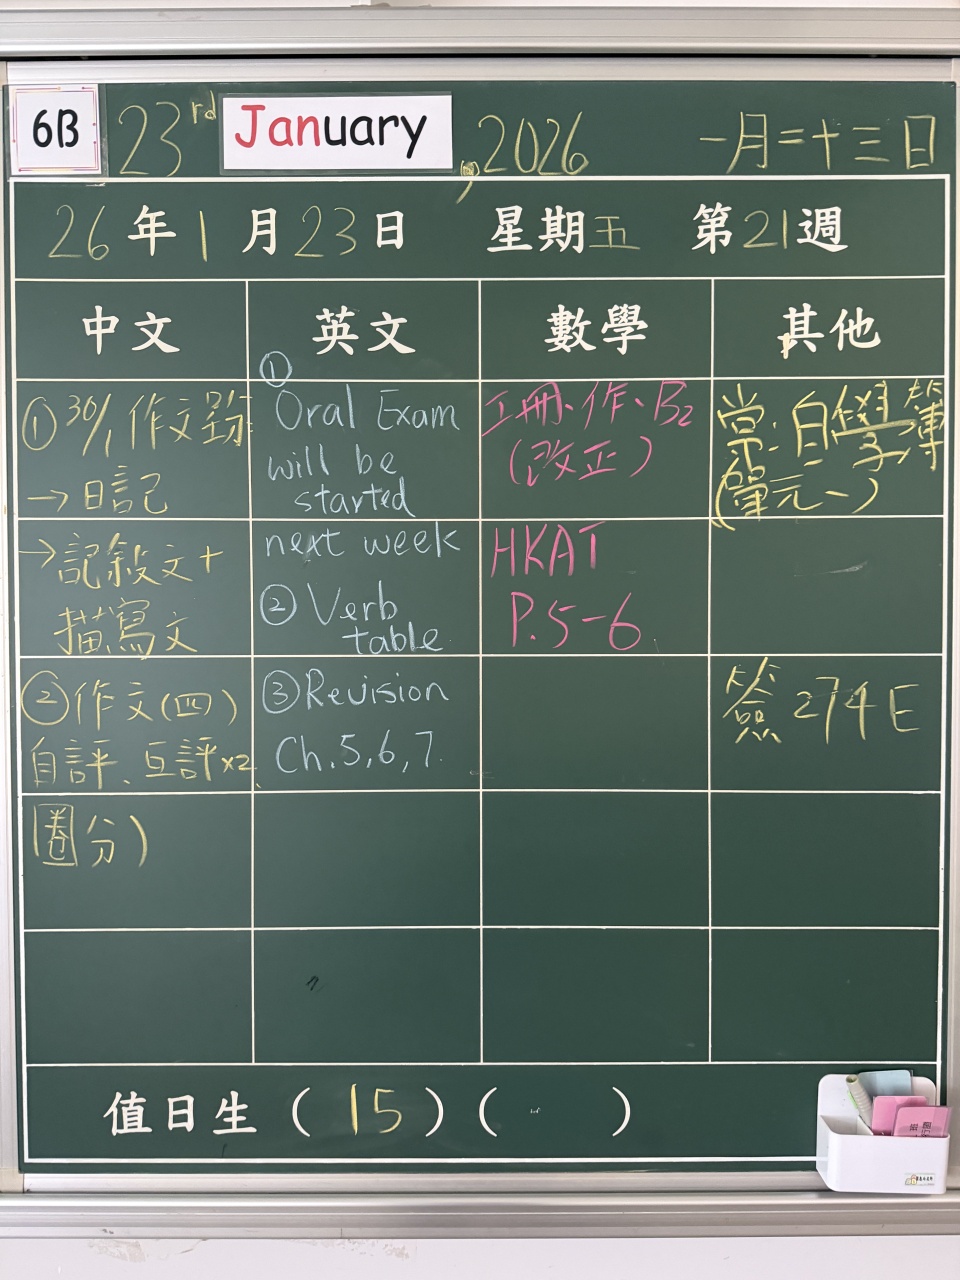 6B 23rd January, 2026 一月二十三日
26年1月23日 星期五 第21週
中文
①30/1 作文
→日記
→記敘文+
描寫文
②作文(四)
自評、互評x2
圈分)
英文
①
Oral Exam
will be
started
next week
②Verb
table
③Revision
Ch.5,6,7.
數學
作、B2
(改正)
HKAT
P.5-6
其他
常:自學簿
(單元一)
簽274E
值日生(15)( )